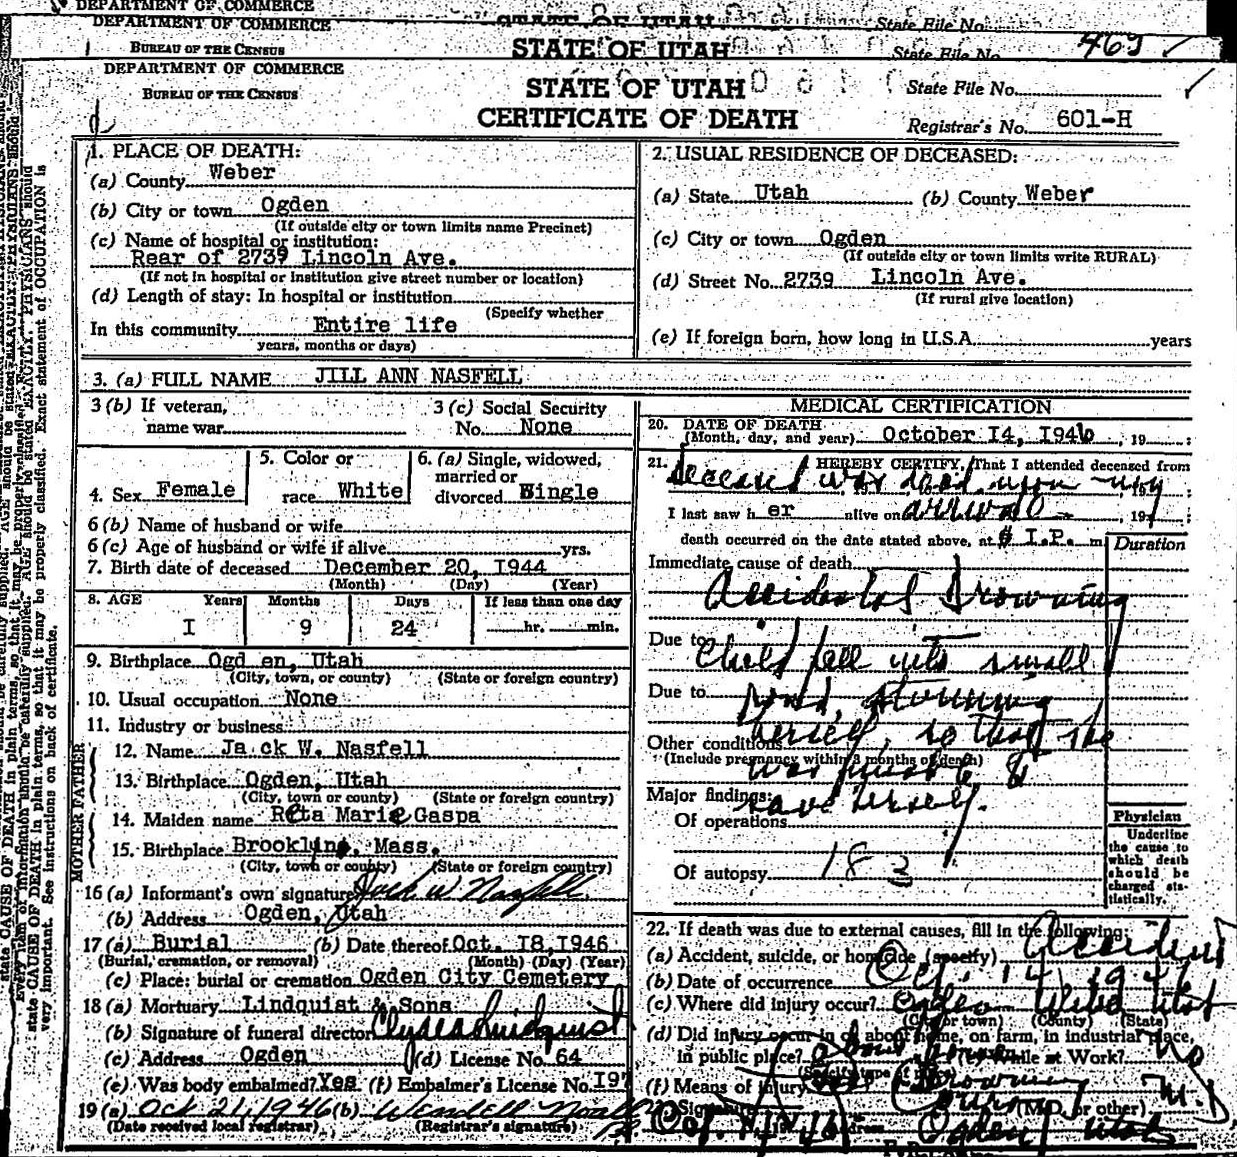 DEPARTMENT OF COMMERCE
DEPARTMENT OF COMMERCE STATE OF UTAH State File No.
BUREAU OF THE CENSUS STATE OF UTAH State File No. 465
DEPARTMENT OF COMMERCE
BUREAU OF THE CENSUS
STATE OF UTAH
CERTIFICATE OF DEATH
State File No.
Registrar's No. 601-H
1. PLACE OF DEATH:
(a) County Weber
(b) City or town Ogden
(If outside city or town limits name Precinct)
(c) Name of hospital or institution:
Rear of 2739 Lincoln Ave.
(If not in hospital or institution give street number or location)
(d) Length of stay: In hospital or institution
(Specify whether
In this community Entire life
years, months or days)
2. USUAL RESIDENCE OF DECEASED:
(a) State Utah (b) County Weber
(c) City or town Ogden
(If outside city or town limits write RURAL)
(d) Street No. 2739 Lincoln Ave.
(If rural give location)
(e) If foreign born, how long in U.S.A. years
3. (a) FULL NAME JILL ANN NASFELL
3 (b) If veteran,
name war
3 (c) Social Security
No. None
4. Sex Female
5. Color or
race White
6. (a) Single, widowed,
married or
divorced Single
6 (b) Name of husband or wife
6 (c) Age of husband or wife if alive yrs.
7. Birth date of deceased December 20, 1944
(Month) (Day) (Year)
8. AGE Years Months Days If less than one day
I 9 24 hr. min.
9. Birthplace Ogd en, Utah
(City, town, or county) (State or foreign country)
10. Usual occupation None
11. Industry or business
FATHER
12. Name Ja ck W. Nasfell
13. Birthplace Ogden, Utah
(City, town or county) (State or foreign country)
MOTHER
14. Maiden name Reta Marie Gaspa
15. Birthplace Brookline, Mass.
(City, town or county) (State or foreign country)
16 (a) Informant's own signature Jack W Nasfell
(b) Address Ogden, Utah
17 (a) Burial (b) Date thereof Oct. I8,I946
(Burial, cremation, or removal) (Month) (Day) (Year)
(c) Place: burial or cremation Ogden City Cemetery
18 (a) Mortuary Lindquist & Sons
(b) Signature of funeral director Lindquist
(c) Address Ogden (d) License No. 64
(e) Was body embalmed? Yes (f) Embalmer's License No. I97
19 (a) Oct 21, 1946 (b) Wendell
(Date received local registrar) (Registrar's signature)
MEDICAL CERTIFICATION
20. DATE OF DEATH
(Month, day, and year) October I4, I946, 19 :
21. HEREBY CERTIFY, That I attended deceased from
deceased was dead upon my
I last saw h er alive on arrival, 19 :
death occurred on the date stated above, at 8 I.P. m
Duration
Immediate cause of death
Accidental Drowning
Due to Child fell into small
Due to pond, stunning
Other conditions herself, so that she
(Include pregnancy within 3 months of death)
was unable to
Major findings: save herself.
Of operations
Of autopsy 183
Physician
Underline
the cause to
which death
should be
charged sta-
tistically.
22. If death was due to external causes, fill in the following:
(a) Accident, suicide, or homicide (specify) Accident
(b) Date of occurrence Oct. 14, 1946
(c) Where did injury occur? Ogden Weber Utah
(City or town) (County) (State)
(d) Did injury occur in or about home, on farm, in industrial place,
in public place? about home While at Work? No
(Specify type of place)
(f) Means of injury Drowning
Signature M.D.
(M.D. or other)
Address Ogden Utah